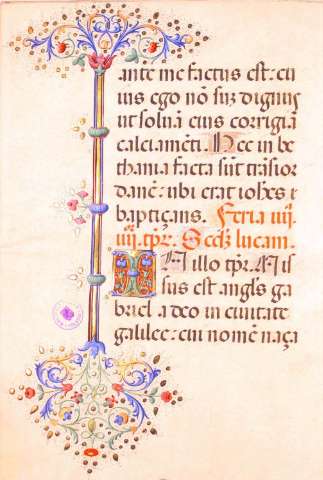 ante me factus est: cu
ius ego nõ suz dignus
ut soluã eius corrigiã
calciamẽti. Hec in be
thania facta sũt trãsior
danẽ: ubi erat iohẽs
baptiçans. Feria iiij.
iiij. tpr. Secdz lucam.
IN illo tpr. Mis
sus est angls ga
briel a deo in civitate
galilee: cui nomẽ naça